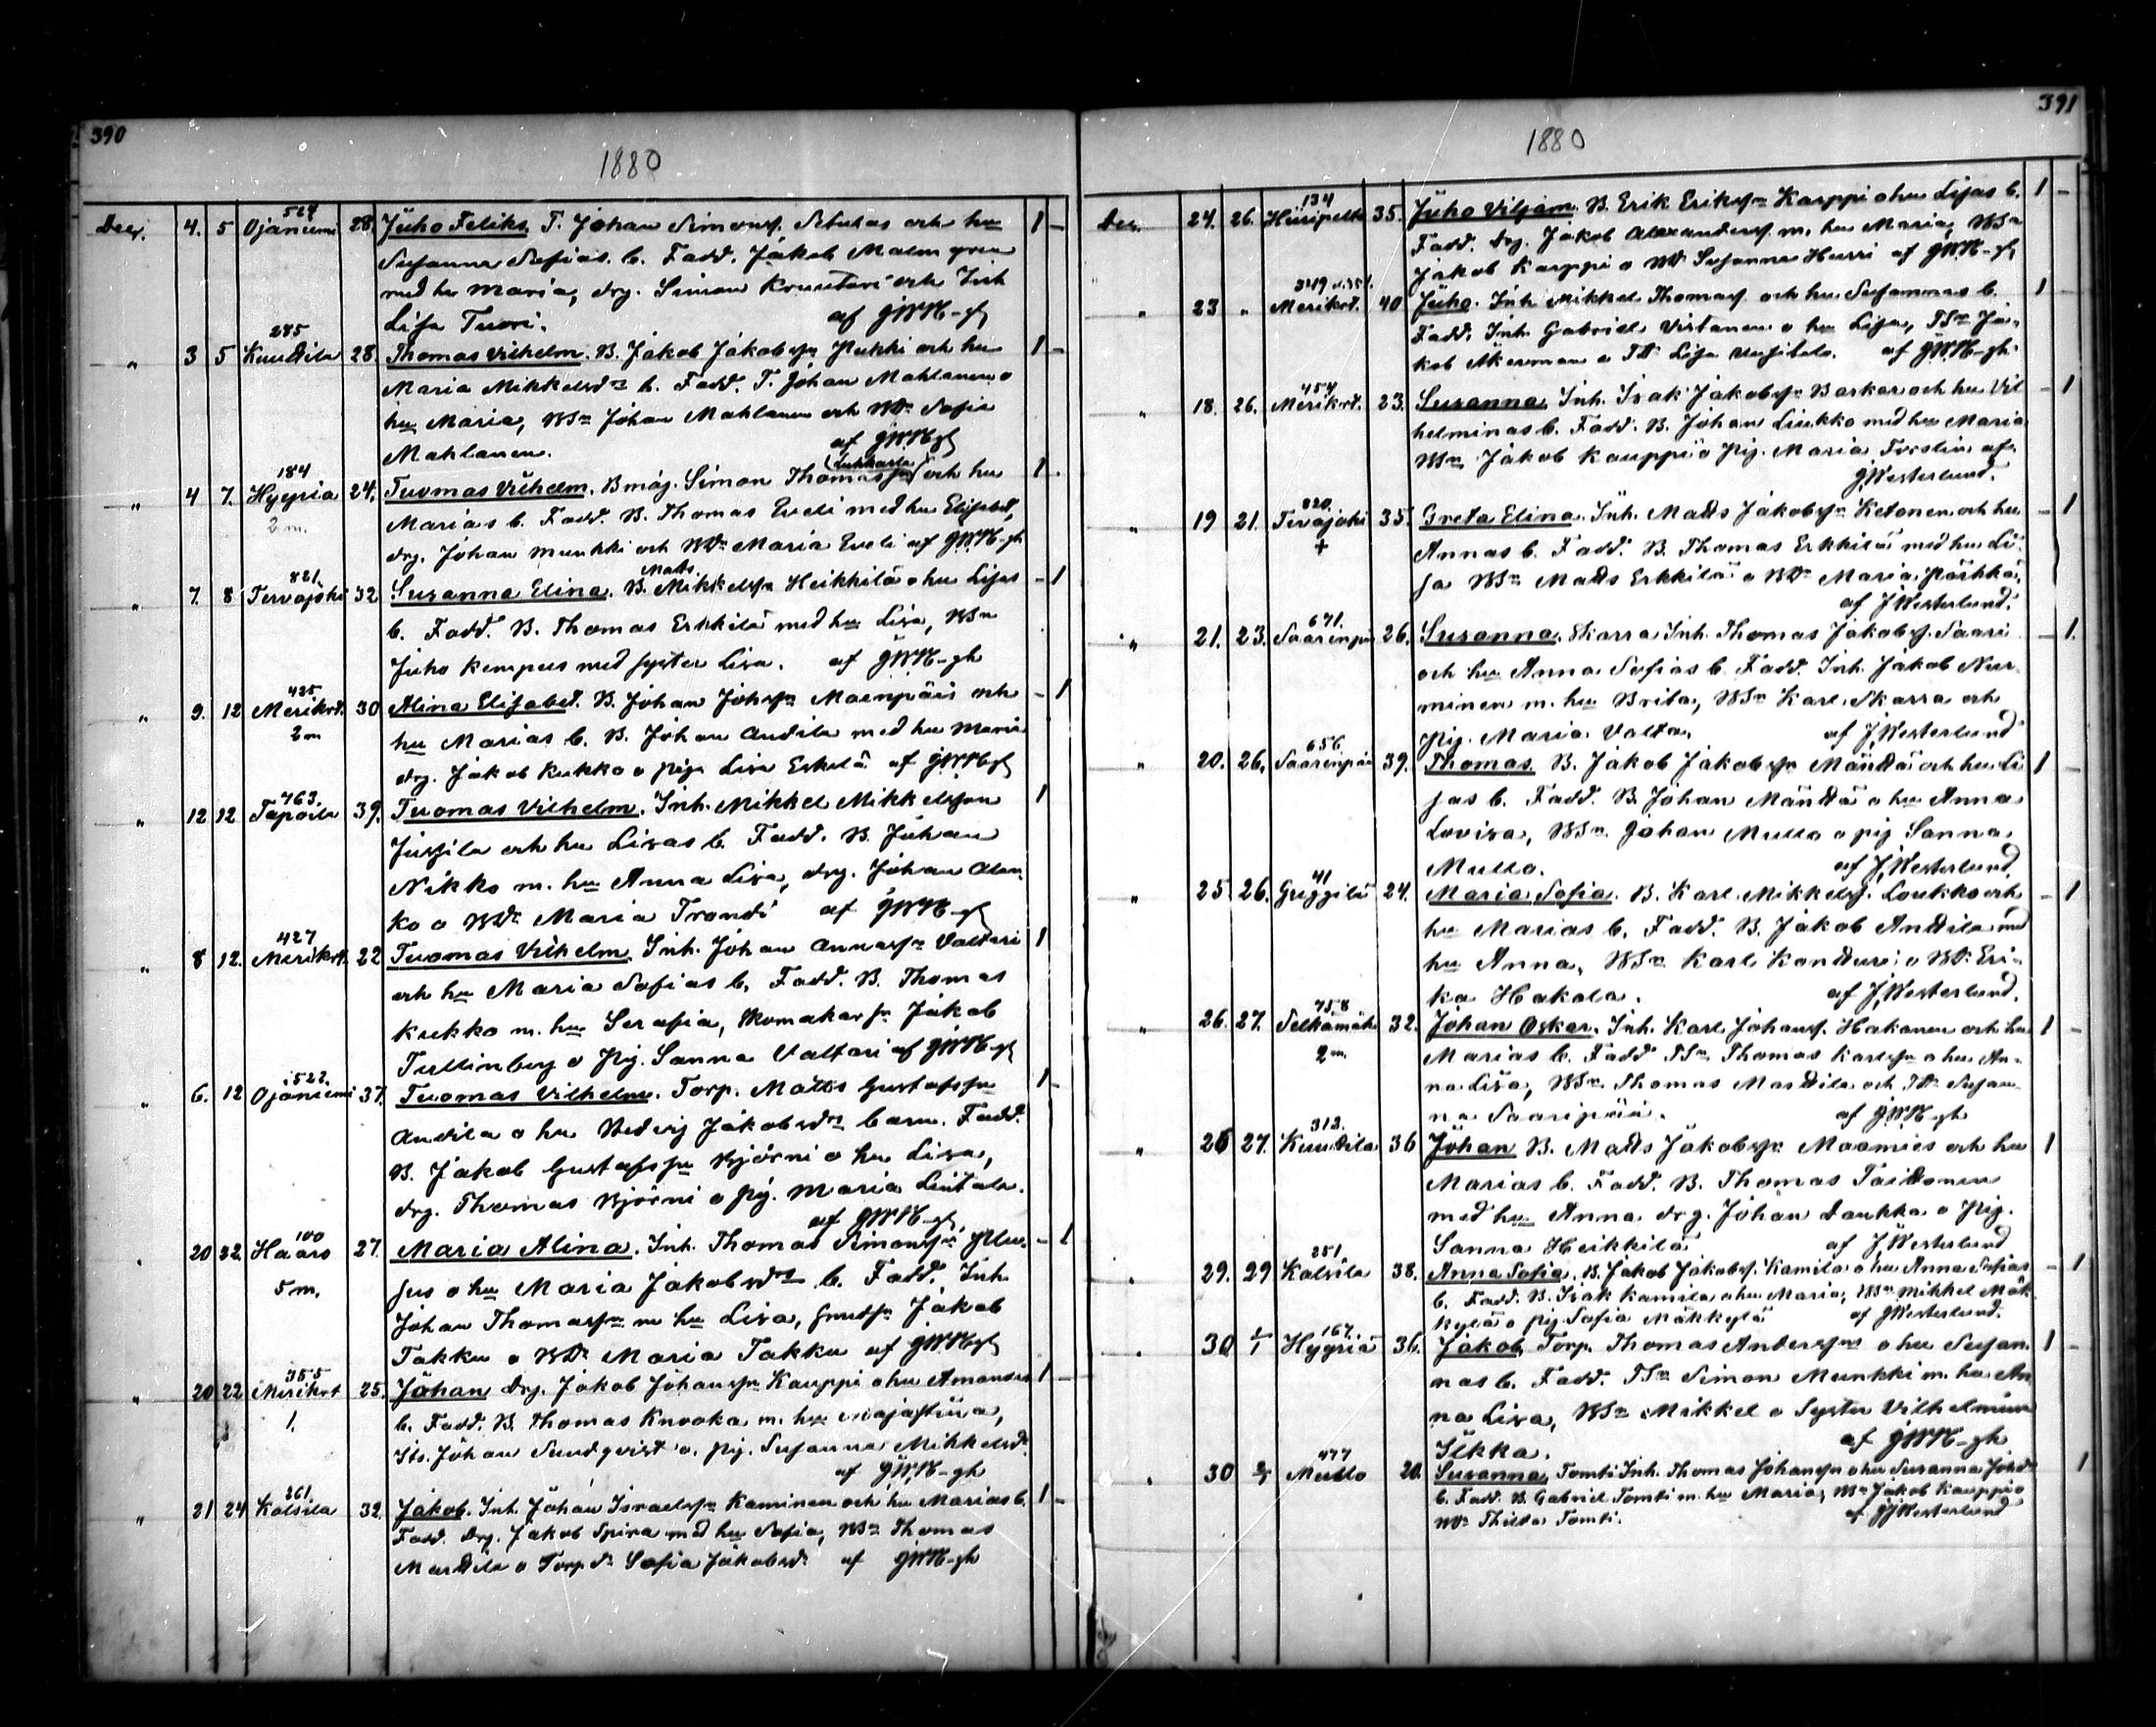 390
1880
524
Decr. 4. 5 Ojaniemi 28. Juho Feliks T. Johan Simonsf. och hu
Susanna Sofias b. Fadd. Jakob Malmgren
med hu Maria, drg. Simon och Inh
Lisa Tuori. af GWH-gh
285
" 3 5 Kuuttila 28. Thomas Vilhelm. B. Jakob Jakobsfn Pukki och hu
Maria Mikkelsdr b. Fadd. T. Johan Mahlanen o
hu Maria, BSn Johan Mahlanen och BDr Sofia
Mahlanen. af GWH-gh
184 (Lukkarla)
" 4 7. Hygria 24. Tuomas Vilhelm. Bmåg. Simon Thomasfn och hu
2 m. Marias b. Fadd. B. Thomas Eveli med hu Elisabet,
drg. Johan Munkki och BDr Maria Eveli af GWH-gh
821 Matts
" 7. 8 Tervajoki 32 Susanna Elina. B. Mikkelsfn Heikkilä o hu Lisas
b. Fadd. B. Thomas Erkkilä med hu Lisa, BSn
Juho Kempus med syster Lisa. af GWH-gh
425
" 9. 12 Merikrt. 30 Alina Elisabet. B. Johan Johsfn Maenpääs och
2 m hu Marias b. B. Johan Anttila med hu Maria
drg. Jakob Kukko o piga Lisa Eskelä af GWH-gh
763.
" 12 12 Taposla 39. Tuomas Vilhelm. Inh. Mikkel Mikkelsson
Jussila och hu Lisas b. Fadd. B. Johan
Nikko m. hu Anna Lisa, drg. Johan Alan
ko o BDr Maria Trondi af GWH-gh
427
" 8 12. Merikrt. 22 Tuomas Vilhelm. Inh. Johan Annasfn Valtari
och hu Maria Sofias b. Fadd. B. Thomas
Kukko m. hu Serafia, Skomakarfn Jakob
Tullinberg o pig. Sanna Valtari af GWH-gh
522.
" 6. 12 Ojaniemi 37. Tuomas Vilhelm. Torp. Matts Gustafsfn
Anttila o hu Hedvig Jakobsdrs barn. Fadd.
B. Jakob Gustafsfn Björni o hu Lisa,
drg. Thomas Björni o pig. Maria Lintala.
af GWH-gh.
100
" 20 22. Haaro 27. Maria Alina. Inh. Thomas Simonsfn
5 m. jus o hu Maria Jakobsdrs b. Fadd. Inh
Johan Thomasfn m hu Lisa, Jakob
Takku o BDr Maria Takku af GWH-gh
355
" 20 22 Merikrt 25. Johan drg. Jakob Johansfn Kauppi o hu Amandas
1. b. Fadd. B. Thomas Knooka m. hu Majastina,
Johan Sundqvist o. pig. Susanna Mikkelsdr
af GWH-gh
261
" 21 24 Kalsila 32. Jakob. Inh. Johan Israelsfn Kaminen och hu Marias b.
Fadd. drg. Jakob Spira med hu Sofia, BSn Thomas
Marttila o Torp.dr Sofia Jakobsdr af GWH-gh
391
1880
134
Dec. 24. 26. Hiiripelto 35. Juho Viljam. B. Erik Eriksfn Karppi o hu Lisas b.
Fadd. drg. Jakob Alexandersf. m. hu Maria, BSn
Jakob Karppi o BDr Susanna Hurri af GWH-gh
349
" 23 " Merikrt. 40 Juho. Inh. Mikkel Thomasf. och hu Susannas b.
Fadd. Inh. Gabriel Virtanen o hu Lisa, TSn Ja-
kob Åkerman o TDr Lisa Uusitalo. af GWH-gh
454
" 18. 26. Merikrt. 23. Susanna. Inh. Isak Jakobsfn Barkar och hu Vil
helminas b. Fadd. B. Johan Liukko med hu Maria
BSn Jakob Kauppi o pig. Maria Forslin af
JWesterlund.
820.
" 19 21. Tervajoki 35. Greta Elina. Inh. Matts Jakobsfn Ketonen och hu
+ Annas b. Fadd. B. Thomas Erkkilä med hu Li-
sa BSn Matts Erkkilä o BDr Maria
af JWesterlund.
671.
" 21. 23. Saarenpä 26. Susanna. Skarra Inh. Thomas Jakobsf. Saari
och hu Anna Sofias b. Fadd. Inh. Jakob Nur-
minen m. hu Brita, BSn Karl Skarra och
pig. Maria Valta. af JWesterlund
656
" 20. 26. Saarenpää 39. Thomas. B. Jakob Jakobsfn Mänttä och hu Li
sas b. Fadd. B. Johan Mänttä o hu Anna
Lovisa, BSn. Johan Mullo o pig Sanna
Mullo. af JWesterlund.
41
" 25 26. Greggilä 24. Maria Sofia. B. Karl Mikkelsf. Loukko och
hu Marias b. Fadd. B. Jakob Anttila med
hu Anna, BSn Karl Kontturi o BDr Eri-
ka Hakala. af JWesterlund.
758
" 26. 27. Selkämäk 32. Johan Oskar. Inh. Karl Johansf. Hakanen och hu
2 m Marias b. Fadd TSn Thomas Karlsfn o hu An-
na Lisa, BSn. Thomas Marttila och TDr Susan
na Saaripää. af GWH-gh
312.
" 26 27. Kuuttila 36 Johan B. Matts Jakobsfn Maamies och hu
Marias b. Fadd. B. Thomas Taittonen
med hu Anna drg. Johan Laukka o Pig.
Sanna Heikkilä af JWesterlund
251
" 29. 29 Kalsila 38. Anna Sofia. B. Jakob Jakobsf. Kamila o hu Anna Sofias
b. Fadd. B. Isak Kamila o hu Maria, BSn Mikkel Mäk-
kylä o pig Sofia Mäkkylä af JWesterlund.
167.
" 30 1/1 Hygriä 36. Jakob Torp. Thomas Andersfn o hu Susan-
nas b. Fadd. TSn Simon Munkki m. hu An
na Lisa, BSn Mikkel o Syster Vilhelmina
Ilkka. af GWH-gh
477
" 30 2/1 Mullo 20. Susanna Tomti Inh. Thomas Johansfn o hu Susanna Johdr
b. Fadd. B. Gabriel Tomti m. hu Maria, Jakob Kauppi o
BDr Thilda Tomti. af JWesterlund